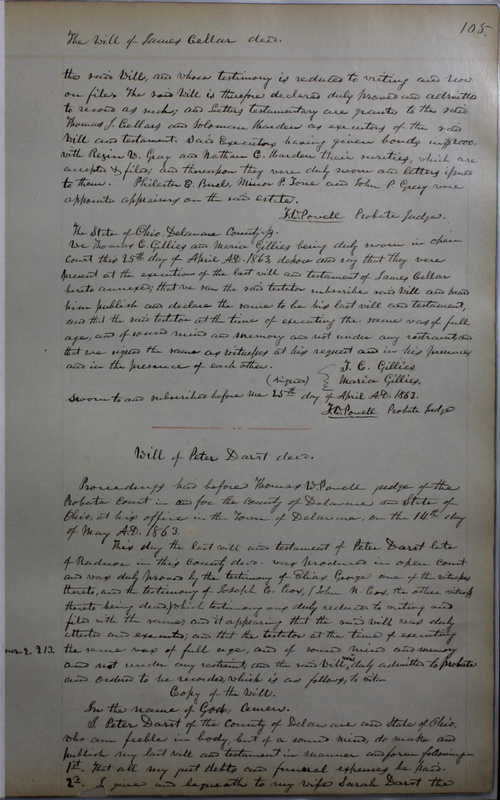 105
The Will of James Cellar decd.
the said Will, and whose testimony is reduced to writing and now
on file. The said Will is therefore declared duly proved and admitted
to record as such; and Letters testamentary are granted to the said
Thomas J. Cellars and Soloman Hearden as executors of the said
Will and testament. Said Executors having given bonds in $2000.
with Rezin W. Gray and Nathan C. Hearden their sureties, which are
accepted & filed, and thereupon they were duly sworn and letters issued
to them. Philester E. Buel, Minor P. Tone and John P. Gray were
appointed appraisers on the said estate.
T.W. Powell Probate Judge.
The State of Ohio, Delaware County ss.
We Thomas C. Gillies and Maria Gillies being duly sworn in open
Court this 25th day of April A.D. 1863, depose and say that they were
present at the execution of the last will and testament of James Cellar
hereto annexed; that we saw the said testator subscribe said Will and heard
him publish and declare the same to be his last will and testament,
and that the said testator at the time of executing the same was of full
age, and of sound mind and memory and not under any restraint; and
that we signed the same as witnesses at his request and in his presence
and in the presence of each other.
(signed) T. C. Gillies
Maria Gillies,
Sworn to and subscribed before me 25th day of April A.D. 1863.
T.W. Powell Probate Judge
Will of Peter Darst decd.
Proceedings had before Thomas W. Powell judge of the
Probate Court in and for the County of Delaware and State of
Ohio, at his office in the Town of Delaware, on the 14th day
of May A.D. 1863.
This day the last will and testament of Peter Darst late
of Radnor in this County decd. was produced in open court
and was duly proved by the testimony of Elias George one of the witnesses
thereto, and the testimony of Joseph C. Cox, (John N. Cox the other witness
thereto being dead,) which testimony was duly reduced to writing and
filed with the same; and it appearing that the said will was duly
attested and executed; and that the testator at the time of executing
the same was of full age, and of sound mind and memory
and not under any restraint; and the said Will was duly admitted to probate
and ordered to be recorded, which is as follows, to wit:-
Copy of the Will.
In the name of God, Amen.
I Peter Darst of the County of Delaware and State of Ohio,
who am feeble in body, but of a sound mind, do make and
publish my last will and testament in manner and form following-
1st. That all my just debts and funeral expenses be paid.
2d. I give and bequeath to my wife Sarah Darst the